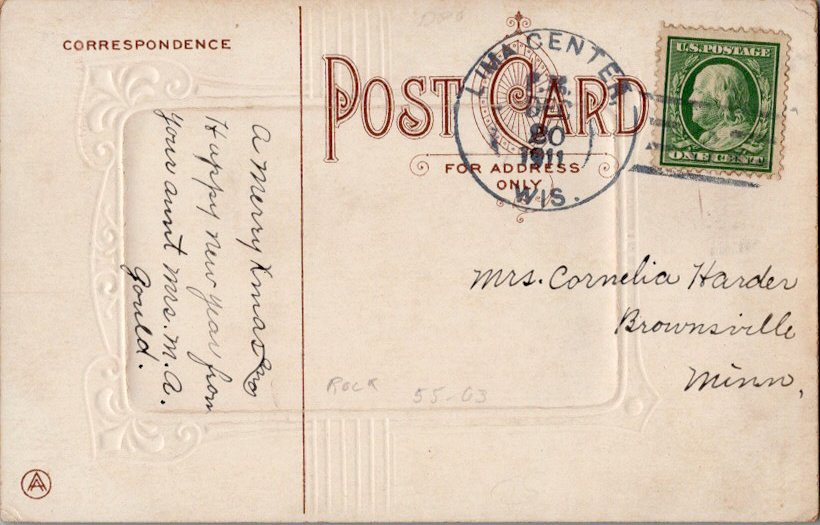 CORRESPONDENCE
POST CARD
FOR ADDRESS
ONLY
LIMA CENTER,
DEC
20
1911
WIS.
U.S. POSTAGE
ONE CENT
A Merry Xmas &
Happy New Year from
your aunt Mrs. M. A.
Gould.
Mrs. Cornelia Harder
Brownsville
Minn,
ROCK
55-03